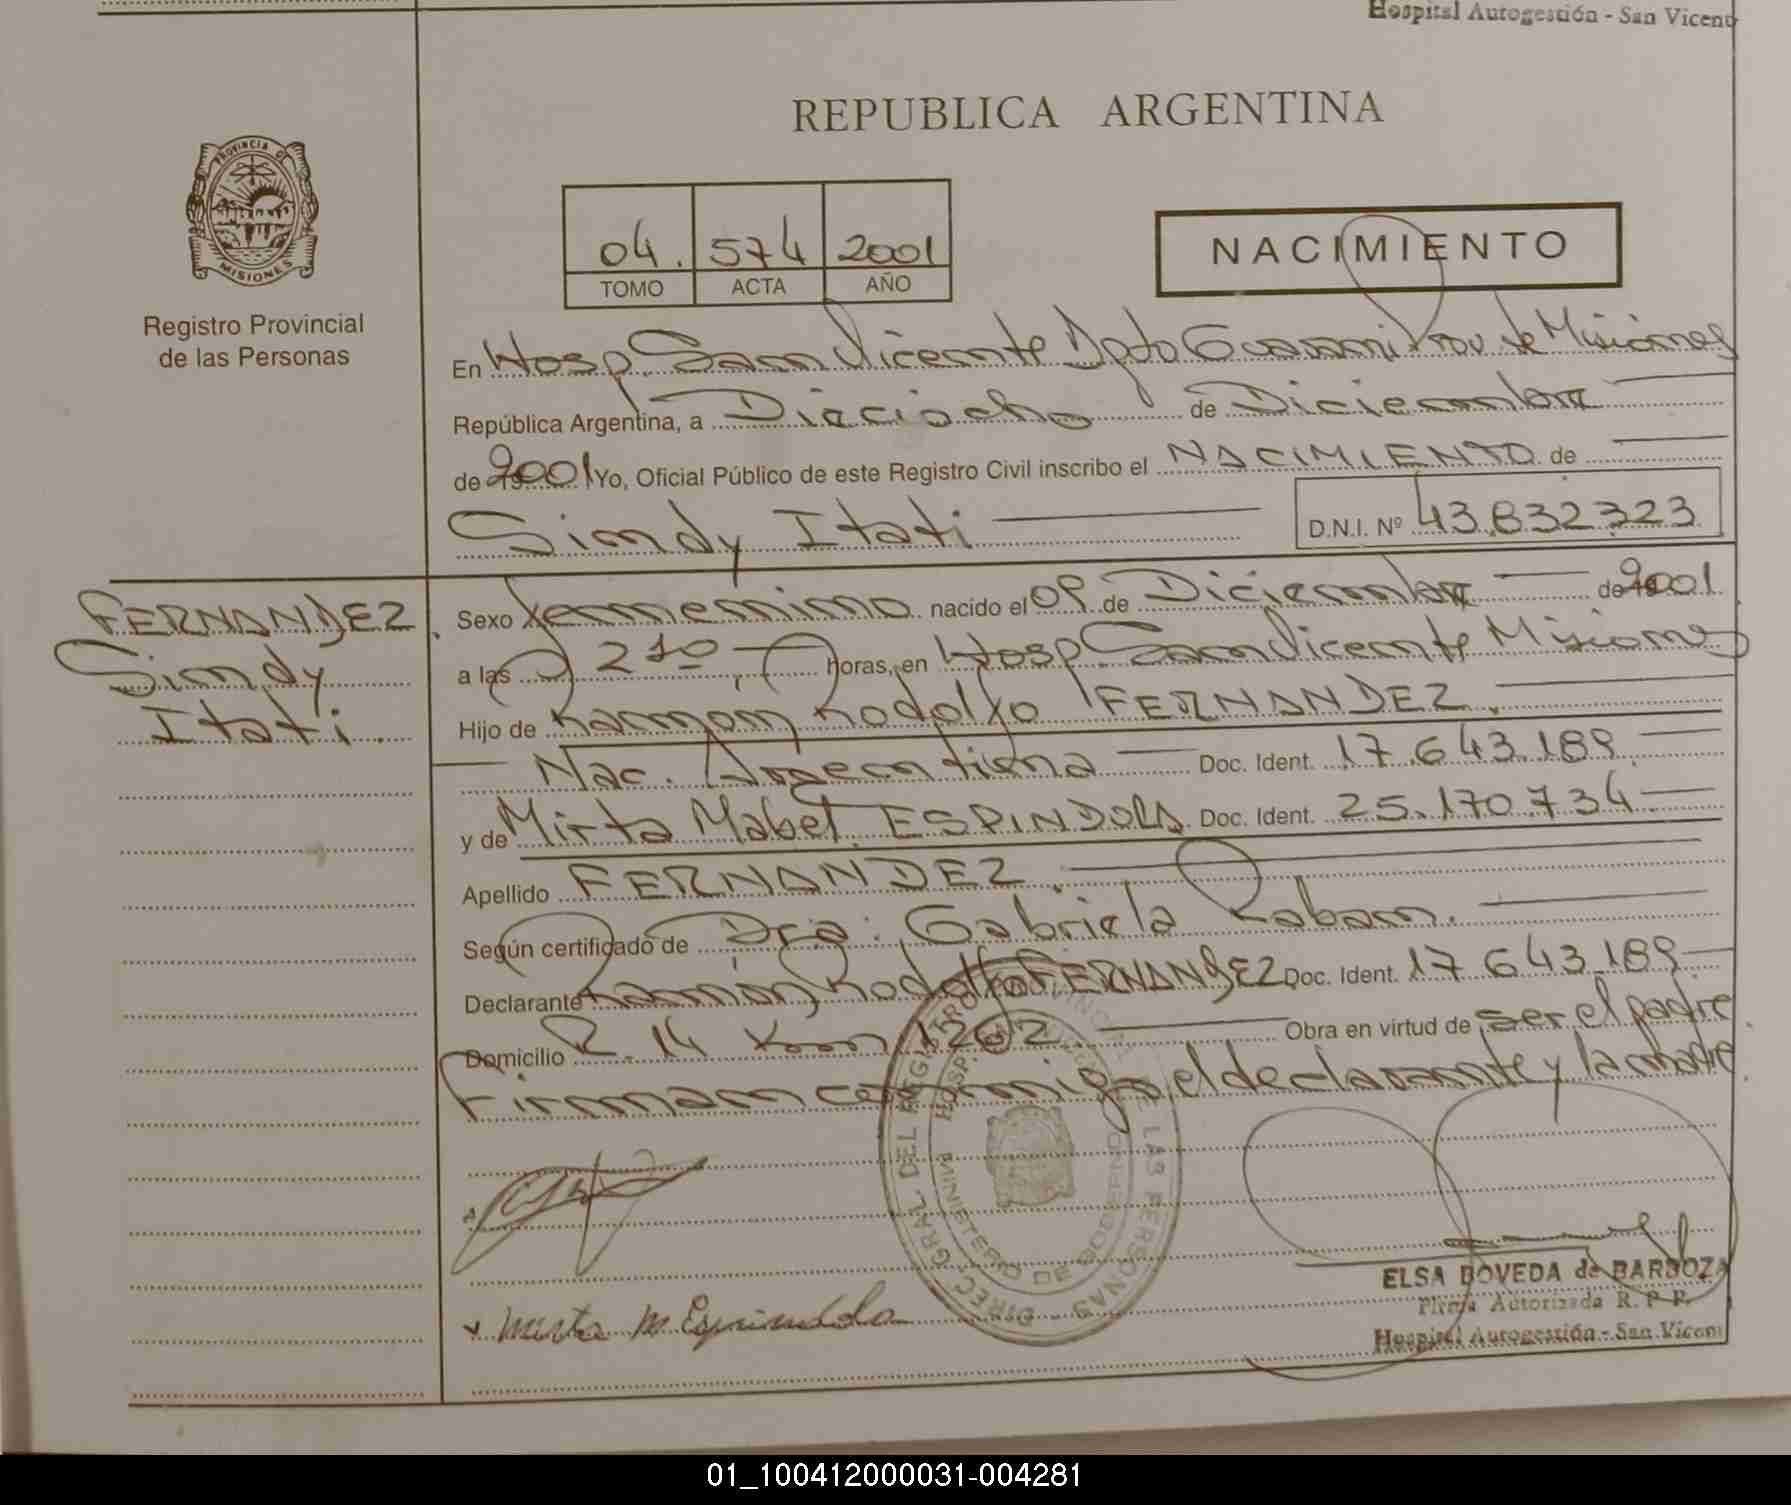 Hospital Autogestión - San Vicent
REPUBLICA ARGENTINA
PROVINCIA DE
MISIONES
Registro Provincial
de las Personas
04. 574 2001
TOMO ACTA AÑO
NACIMIENTO
En Hosp. San Vicente Dpto Guarani Prov. de Misiones
República Argentina, a Dieciocho de Diciembre
de 2001 Yo, Oficial Público de este Registro Civil inscribo el NACIMIENTO de
Sindy Itati D.N.I. Nº 43.832.323
FERNANDEZ
Sindy
Itati.
Sexo femenino nacido el 09 de Diciembre de 2001
a las 2 10 horas, en Hosp. San Vicente Misiones
Hijo de Ramon Rodolfo FERNANDEZ.
Nac. Argentina Doc. Ident. 17.643.189
y de Mirta Mabel ESPINDOLA Doc. Ident. 25.170.734
Apellido FERNANDEZ.
Según certificado de Dra: Gabriela Raban.
Declarante Ramon Rodolfo FERNANDEZ Doc. Ident. 17.643.189
Domicilio R. 14 Km 1262 Obra en virtud de ser el padre
Firman conmigo el declarante y la madre.
DIREC. GRAL. DEL REGISTRO PROVINCIAL DE LAS PERSONAS
MINISTERIO DE GOBIERNO
Mirta M Espindola
ELSA BOVEDA de BARBOZA
Firma Autorizada R. P. P.
Hospital Autogestión - San Vicent
01_100412000031-004281